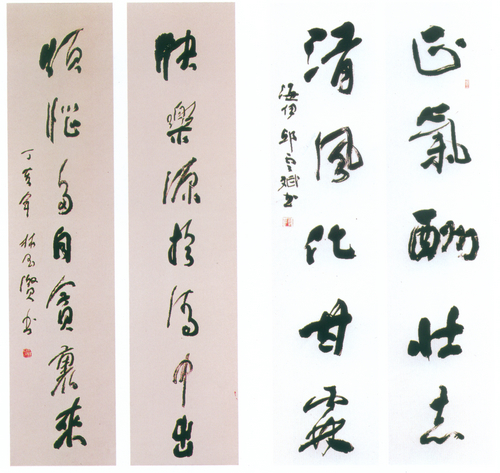 正氣酬壯志
清風化甘霖
邱 斌書
快樂源於 中出
煩惱多自貪裏來
丁亥年 林 賢書